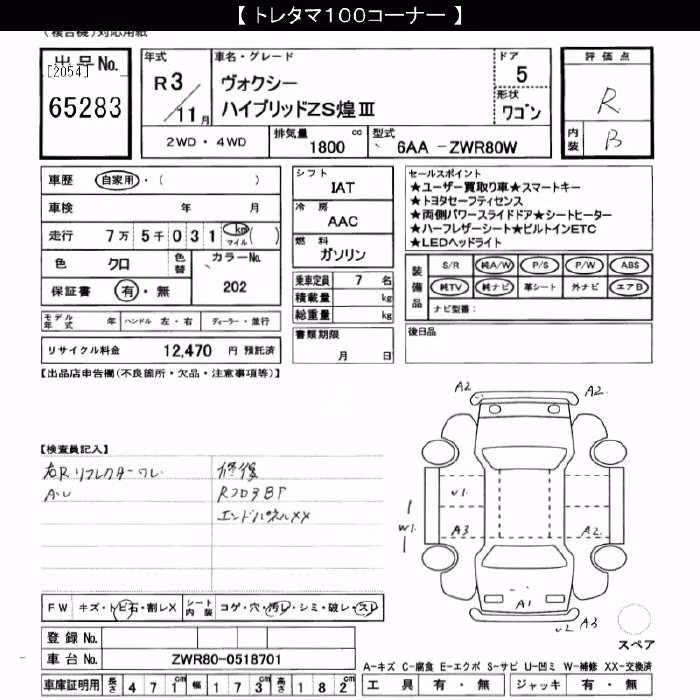 【 トレタマ100コーナー 】
(複合機)対応用紙
出品No.
[2054]
65283
年式
R3/11月
車名・グレード
ヴォクシー
ハイブリッドZS煌Ⅲ
ドア
5
形状
ワゴン
2WD・4WD
排気量 1800 cc
型式 6AA -ZWR80W
評価点
R
内装 B
車歴 自家用・( )
車検 年 月
走行 7万5千031 km マイル ( )
色 クロ 色替 カラーNo. 202
保証書 有・無
モデル年式 年 ハンドル 左・右 ディーラー・並行
リサイクル料金 12,470 円 預託済
シフト
IAT
冷房
AAC
燃料
ガソリン
乗車定員 7 名
積載量 kg
総重量 kg
書類期限
月 日
セールスポイント
★ユーザー買取り車★スマートキー
★トヨタセーフティセンス
★両側パワースライドドア★シートヒーター
★ハーフレザーシート★ビルトインETC
★LEDヘッドライト
装備品
S/R 純A/W P/S P/W ABS
純TV 純ナビ 革シート 外ナビ エアB
ナビ型番:
後日品
【出品店申告欄(不良箇所・欠品・注意事項等)】
【検査員記入】
右Rリフレクターワレ
AU
修復
Rフロア BP
エンドパネルXX
A2
A2
U1
A3
W1
A2
A1
U2 A3
スペア
FW キズ・トビ石・割レX シート内装 コゲ・穴・汚レ・シミ・破レ・スレ
登録No.
車台No. ZWR80-0518701
車庫証明用 長さ 471cm 幅 173cm 高さ 182cm
A-キズ C-腐食 E-エクボ S-サビ U-凹ミ W-補修 XX-交換済
工具 有・無 ジャッキ 有・無